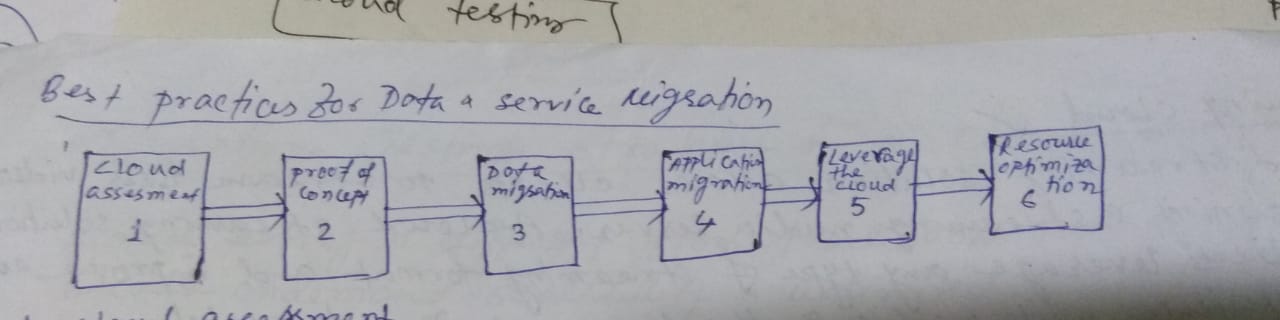 testing
Best practices for Data & service migration
cloud
assesment
1
proof of
concept
2
Data
migration
3
Application
migration
4
Leverage
the
cloud
5
Resource
optimiza
tion
6
assessment